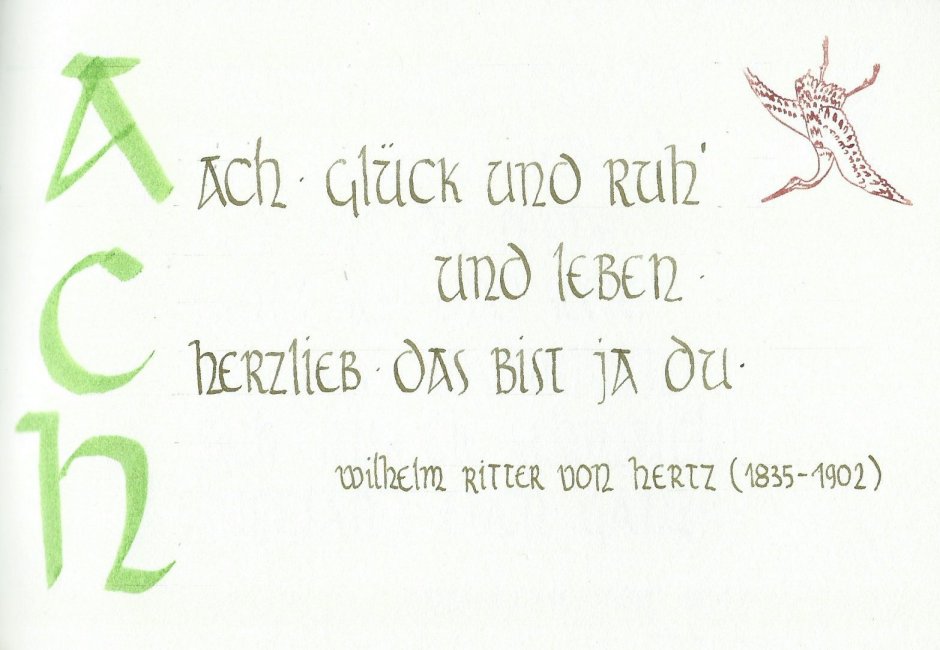 Ach
Ach · Glück und Ruh'
und Leben ·
Herzlieb · das bist ja du ·
Wilhelm Ritter von Hertz (1835-1902)